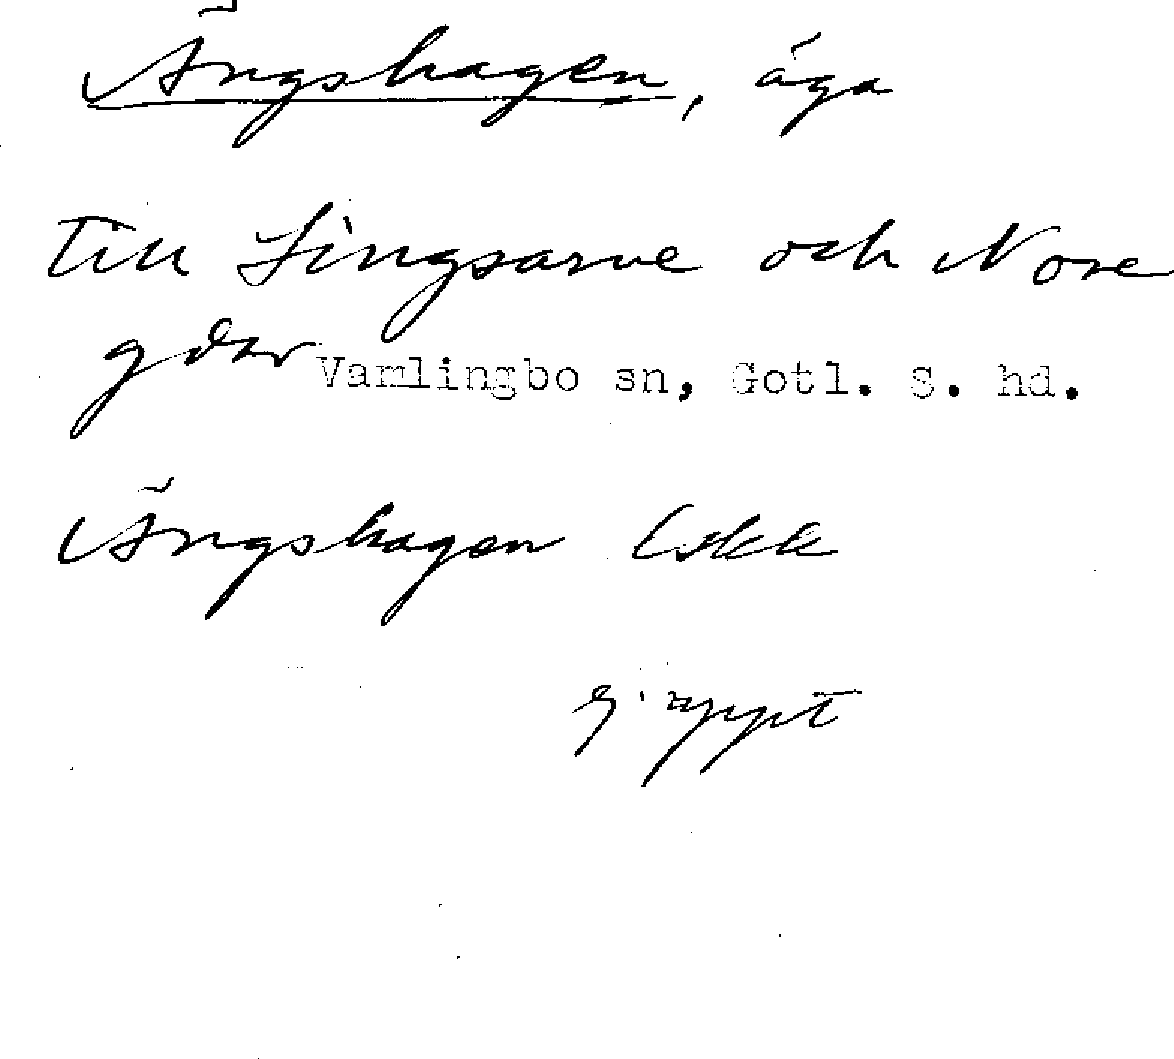 Ängshagen, äga
till Lingsarve och Nore
gdar Vamlingbo sn, Gotl. S. hd.
Ängshagen Eskk
Ej uppt